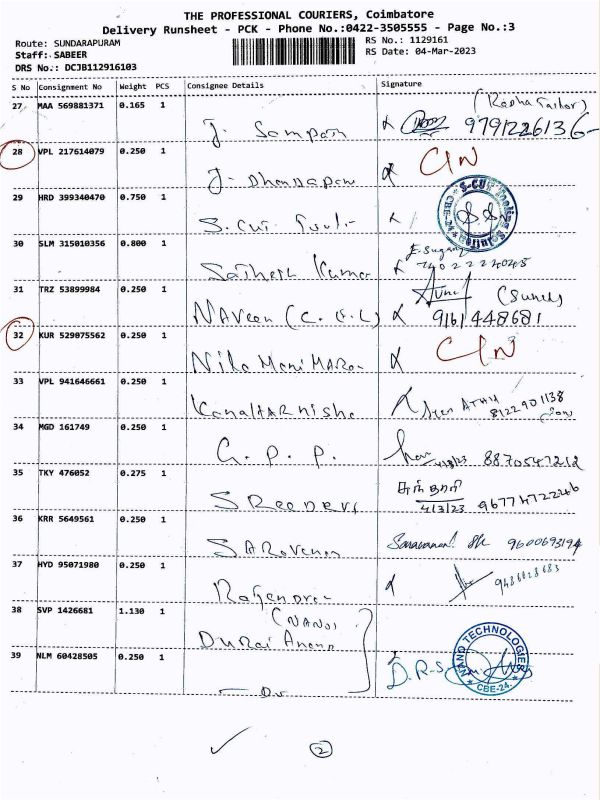 THE PROFESSIONAL COURIERS, Coimbatore
Delivery Runsheet - PCK - Phone No.:0422-3505555 - Page No.:3
Route: SUNDARAPURAM
RS No.: 1129161
Staff: SABEER
RS Date: 04-Mar-2023
DRS No.: DCJB112916103
S No Consignment No Weight PCS Consignee Details Signature
27 MAA 569881371 0.165 1 J. Sampath
9791226136
28 VPL 217614079 0.250 1 J. Dhandapan CIN
29 HRD 399340470 0.750 1 S. Cut
S-CUT CBE-24
30 SLM 315010356 0.800 1 Sathesh Kumar
31 TRZ 53899984 0.250 1 NAVeen (C.
9161448681
32 KUR 529075562 0.250 1 Nila Mani MARan CIN
33 VPL 941646661 0.250 1
8122901138
34 MGD 161749 0.250 1 G. P. P. 4/3/23 8870547212
35 TKY 476052 0.275 1 SReeDevi
4/3/23
36 KRR 5649561 0.250 1 SARavanan Saravanan 9600693194
37 HYD 95071980 0.250 1 Rajendran
38 SVP 1426681 1.130 1 (NANO)
DURai Anand
39 NLM 60428505 0.250 1 - Do D.R.S
NANO TECHNOLOGIES CBE-24.
2